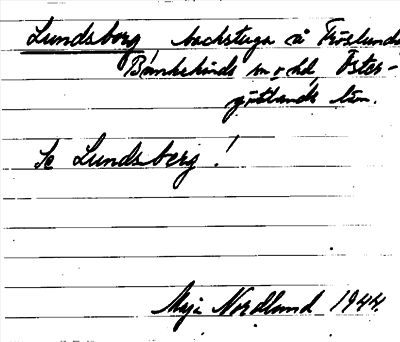 Lundsborg, backstuga å Fröslunda
Bankekinds sn o hd, Öster-
götlands län.
Se Lundsberg!
Maja Nordlund 1944.